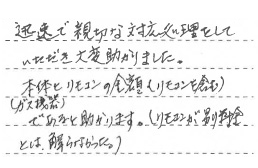 迅速で親切な対応、処理をして
いただき大変助かりました。
本体とリモコンの全額(リモコンを含む)
(ガス機器)
であると助かります。(リモコンが別料金
とは、解らなかった。)